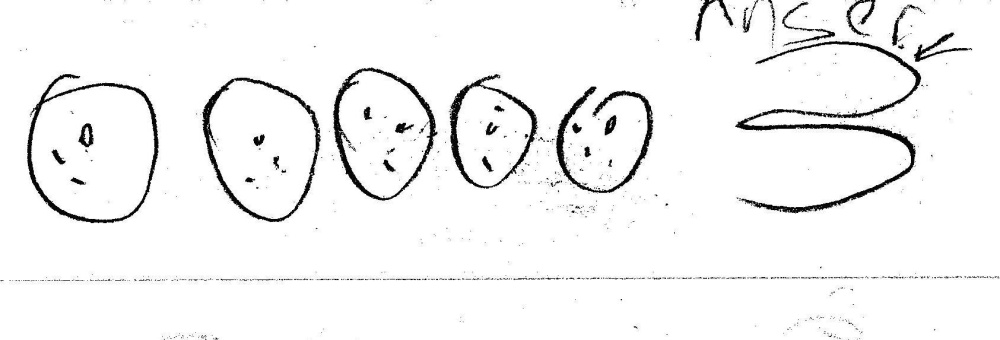 Anser
3